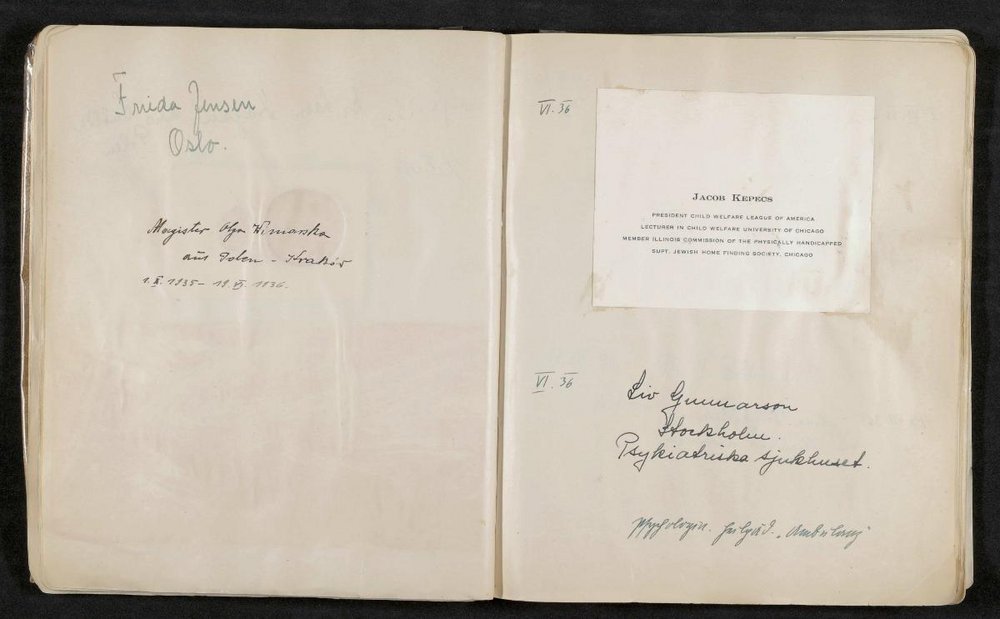 Frieda Jensen
Oslo.
Magister Olga
aus Polen - Kraków
1. X. 1935 - 19. VI. 1936.
VI. 36
JACOB KEPECS
PRESIDENT CHILD WELFARE LEAGUE OF AMERICA
LECTURER IN CHILD WELFARE UNIVERSITY OF CHICAGO
MEMBER ILLINOIS COMMISSION OF THE PHYSICALLY HANDICAPPED
SUPT. JEWISH HOME FINDING SOCIETY, CHICAGO
VI. 36
Siv Gunnarson
Stockholm.
Psykiatriska sjukhuset.